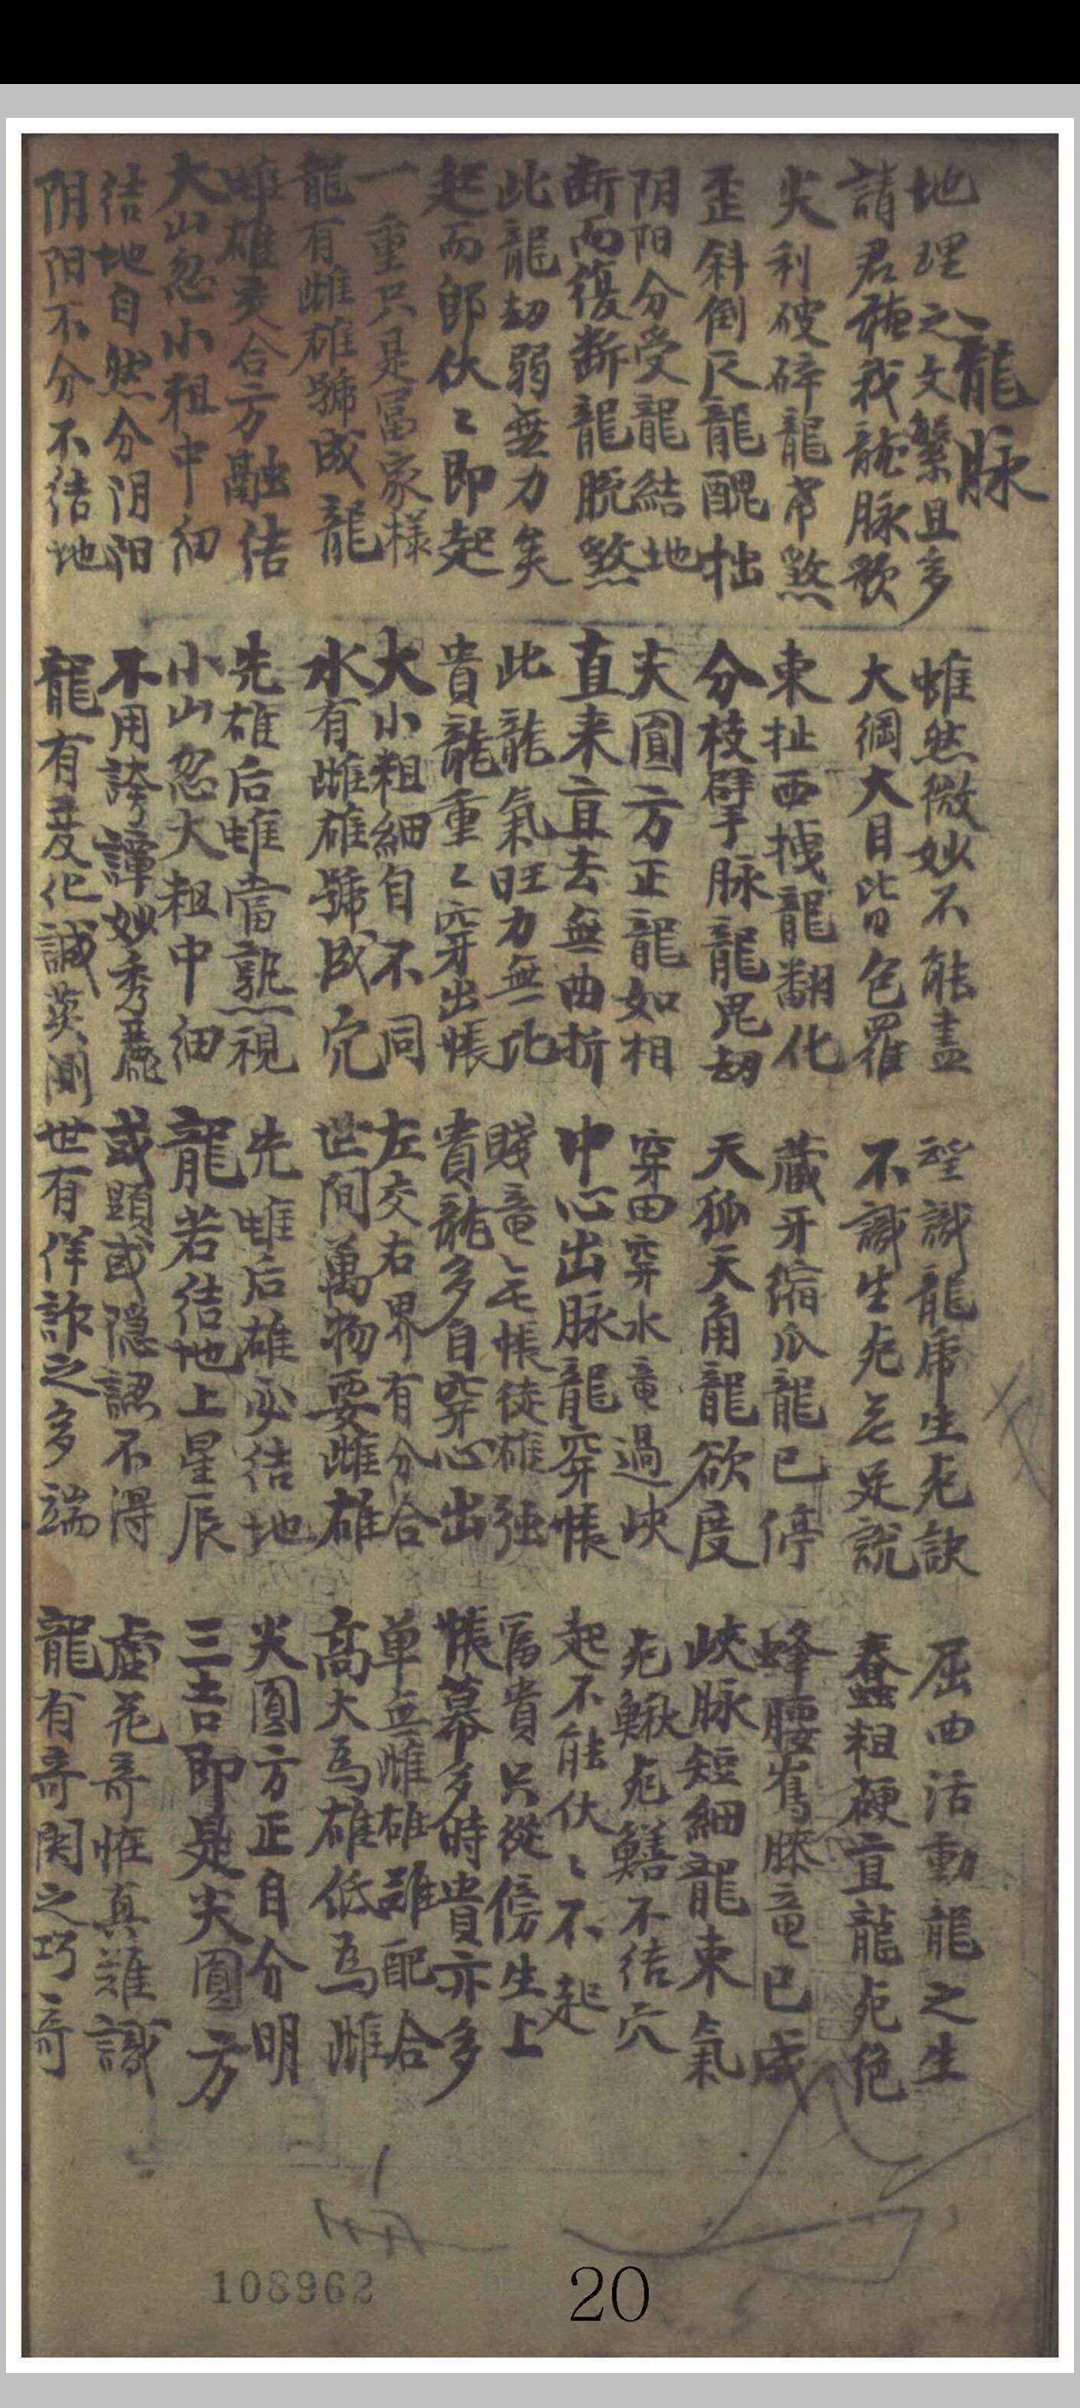 龍脉
地理之文繁且多 雖然微妙不能盡 聖識龍虎生死訣 屈曲活動龍之生
請君聽我龍脉歌 大綱大目皆包羅 不識生死无足說 蠢粗硬直龍死绝
尖利破碎龍帶煞 東扯西拽龍翻化 藏牙缩爪龍已停 蜂腰雀膝竜已成
歪斜倒仄龍醜拙 分枝擘脉龍毘劫 天狐天角龍欲度 峽脉短細龍束氣
阴阳分受龍結地 尖圓方正龍如相 穿田穿水竜過峽 死鰍死鱔不结穴
断而復断龍脫煞 直来直去無曲折 中心出脉龍穿帳 起不能伏〻不起
此龍劫弱無力矣 此龍氣旺力無比 賤竜〻无帳徒雄强 富貴只從傍生上
起而郎伏〻即起 貴龍重〻穿出帳 貴龍多自穿心出 帳幕多時貴亦多
一重只是富家樣 大小粗細自不同 左交右界有分合 单無雌雄難配合
龍有雌雄號成龍 水有雌雄號成穴 世间萬物要雌雄 髙大為雄低為雌
雌雄交合方融结 先雄后雌當熟視 先雌后雄必结地 尖圓方正自分明
大山忽小粗中细 小山忽大粗中细 龍若结地上星辰 三吉即是尖圓方
结地自然分阴阳 不用誇譚妙秀麗 或顕或隐認不淂 虛花竒恠真難識
阴阳不分不结地 龍有变化誠莫測 世有佯詐之多端 龍有竒関之巧竒
108962
20